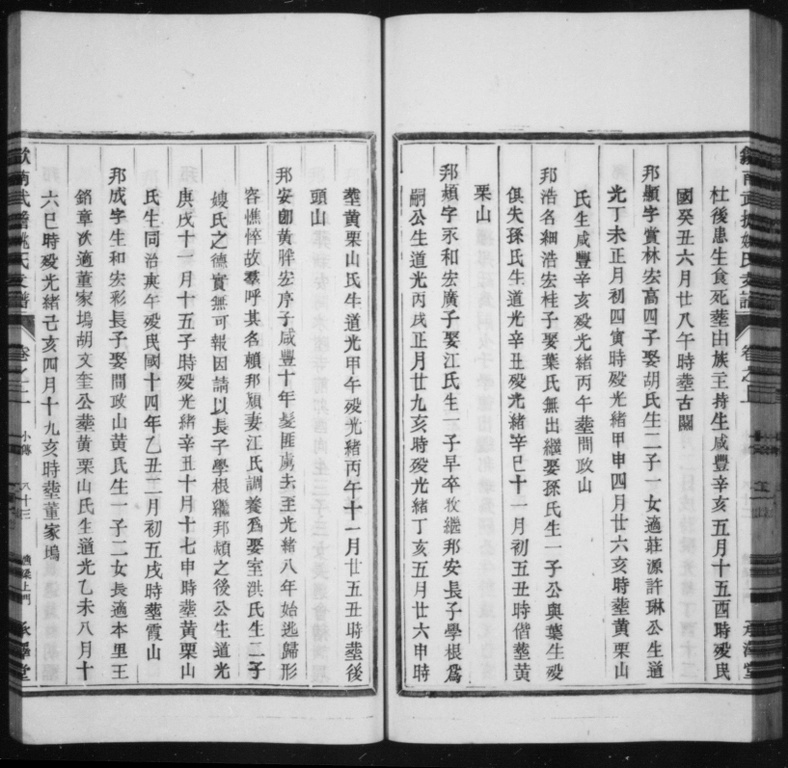 杜後患生食死塟由族王持生咸豐辛亥五月十五酉時殁民
國癸丑六月廿八午時塟古關
邦顯字賞林宏高四子娶胡氏生二子一女適莊源許琳公生道
光丁未正月初四寅時殁光緒甲申四月廿六亥時塟黄栗山
氏生咸豐辛亥殁光緒丙午塟問政山
邦浩名細浩宏桂子娶葉氏無出繼娶孫氏生一子公與葉生殁
俱失孫氏生道光辛丑殁光緒辛巳十一月初五丑時偕塟黄
栗山
邦頬字永和宏廣子娶江氏生一子早卒牧繼邦安長子學根爲
嗣公生道光丙戌正月廿九亥時殁光緒丁亥五月廿六申時
塟黄栗山氏生道光甲午殁光緒丙午十一月廿五丑時塟後
頭山
邦安卽黄胖宏序子咸豐十年髮匪虜去至光緒八年始逃歸形
容憔悴故羣呼其名賴邦頬妻江氏調養爲娶室洪氏生二子
嫂氏之德實無可報因請以長子學根繼邦頬之後公生道光
庚戌十一月十五子時殁光緒辛丑十月十七申時塟黄栗山
氏生同治庚午殁民國十四年乙丑二月初五戌時塟霞山
邦成字生和宏彩長子娶問政山黄氏生一子二女長適本里王
銘章次適董家塢胡文奎公塟黄栗山氏生道光乙未八月十
六巳時殁光緒己亥四月十九亥時塟董家塢
歙南武擔姚氏支譜
卷之二
小傳
八十三
承澤堂